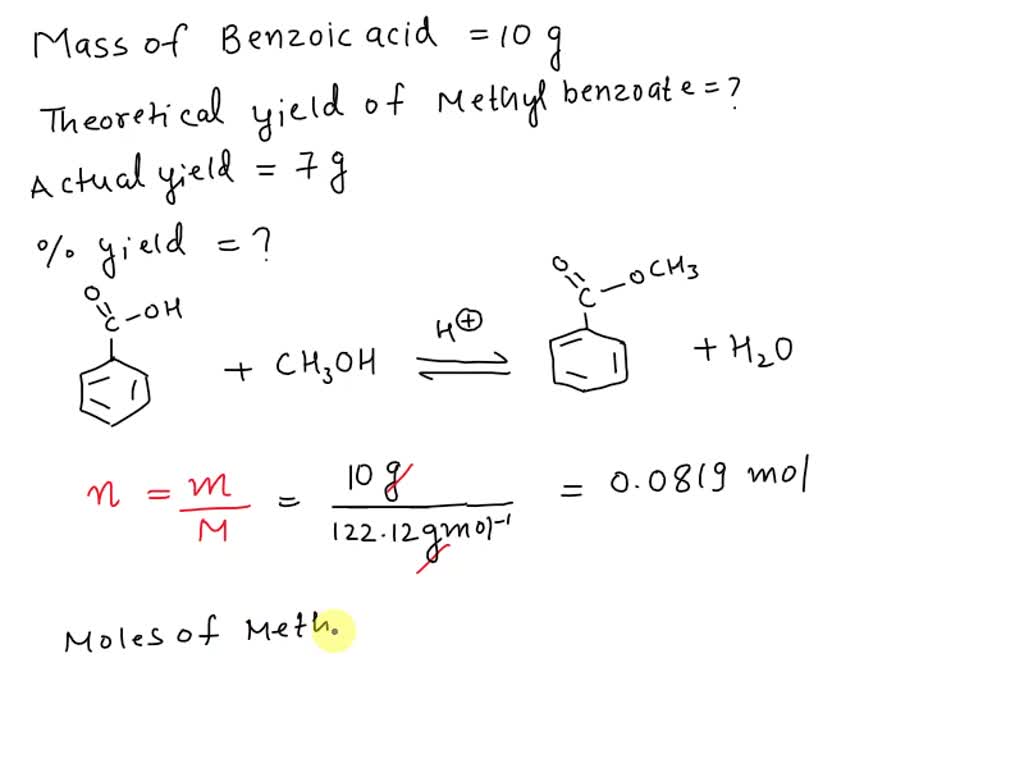 Mass of Benzoic acid = 10 g
Theoretical yield of Methyl benzoate = ?
Actual yield = 7 g
% yield = ?
O
C-OH
+ CH3OH
H⊕
⇌
O
C-OCH3
+ H2O
n = m/M = 10 g / 122.12 g mol⁻¹ = 0.0819 mol
Moles of Meth